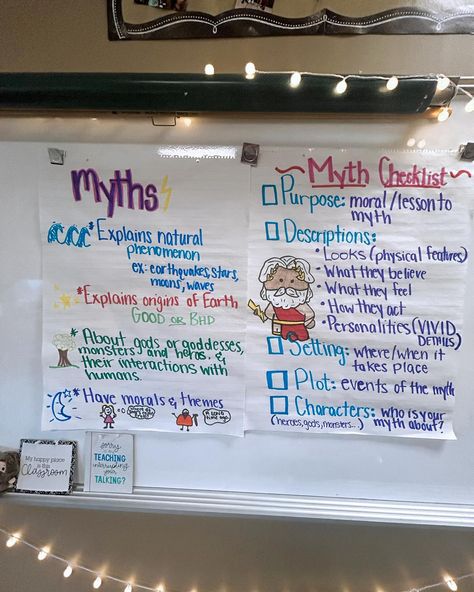 Myths
*Explains natural
phenomenon
ex: earthquakes, stars,
moons, waves
*Explains origins of Earth
GOOD OR BAD
*About gods or goddesses,
monsters and heros, &
their interactions with
humans.
*Have morals & themes
~Myth Checklist~
Purpose: moral/lesson to
myth
Descriptions:
• Looks (physical features)
• What they believe
• What they feel
• How they act
• Personalities (VIVID
DETAILS)
Setting: where/when it
takes place
Plot: events of the myth
Characters: who is your
(heroes, gods, monsters...) myth about?
My happy place
is this
Classroom
Sorry
is my
TEACHING
interrupting
your
TALKING?